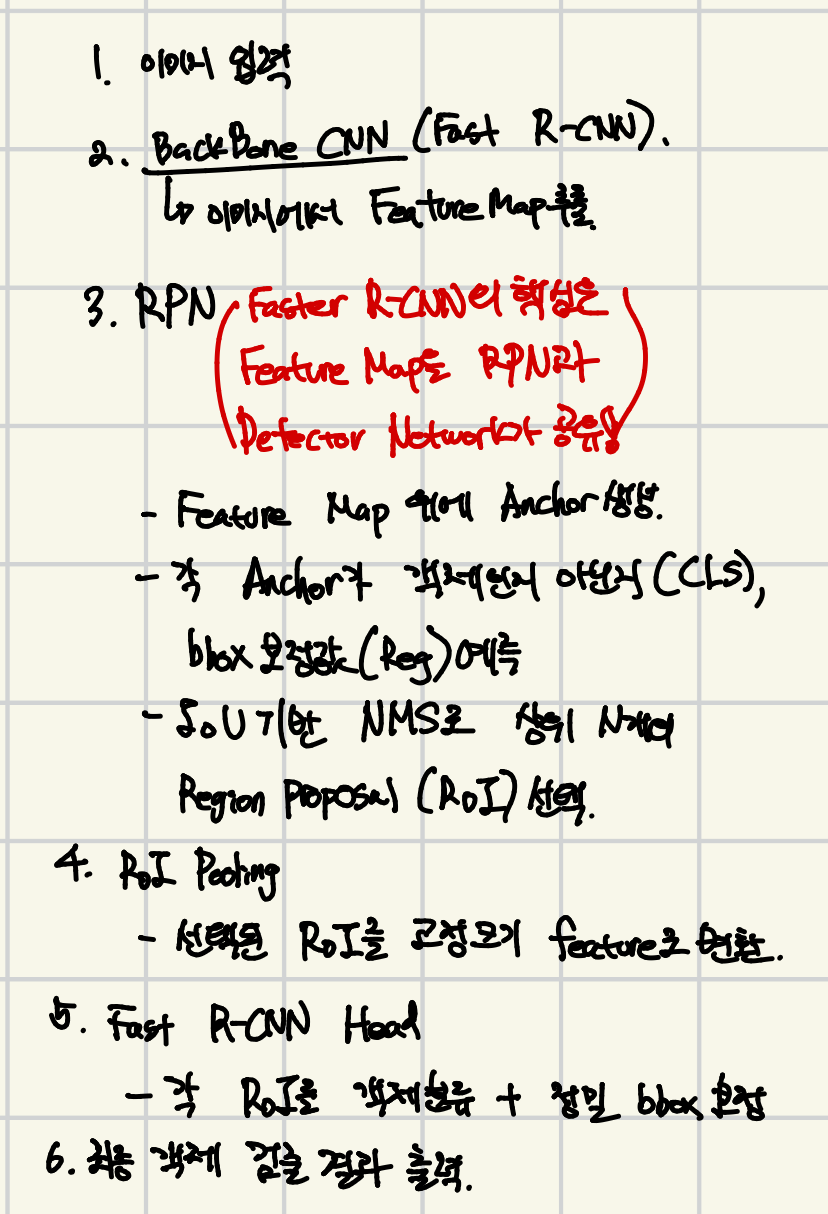 1. 이미지 입력
2. BackBone CNN (Fast R-CNN).
↳ 이미지에서 Feature Map 추출.
3. RPN (Faster R-CNN의 핵심은
Feature Map을 RPN과
Detector Network가 공유함)
- Feature Map 위에 Anchor 생성.
- 각 Anchor가 객체인지 아닌지 (CLS),
bbox 보정값 (Reg) 예측
- IoU 기반 NMS로 상위 N개의
Region Proposal (RoI) 선택.
4. RoI Pooling
- 선택된 RoI를 고정크기 feature로 변환.
5. Fast R-CNN Head
- 각 RoI를 객체분류 + 정밀 bbox 보정
6. 최종 객체 검출 결과 출력.